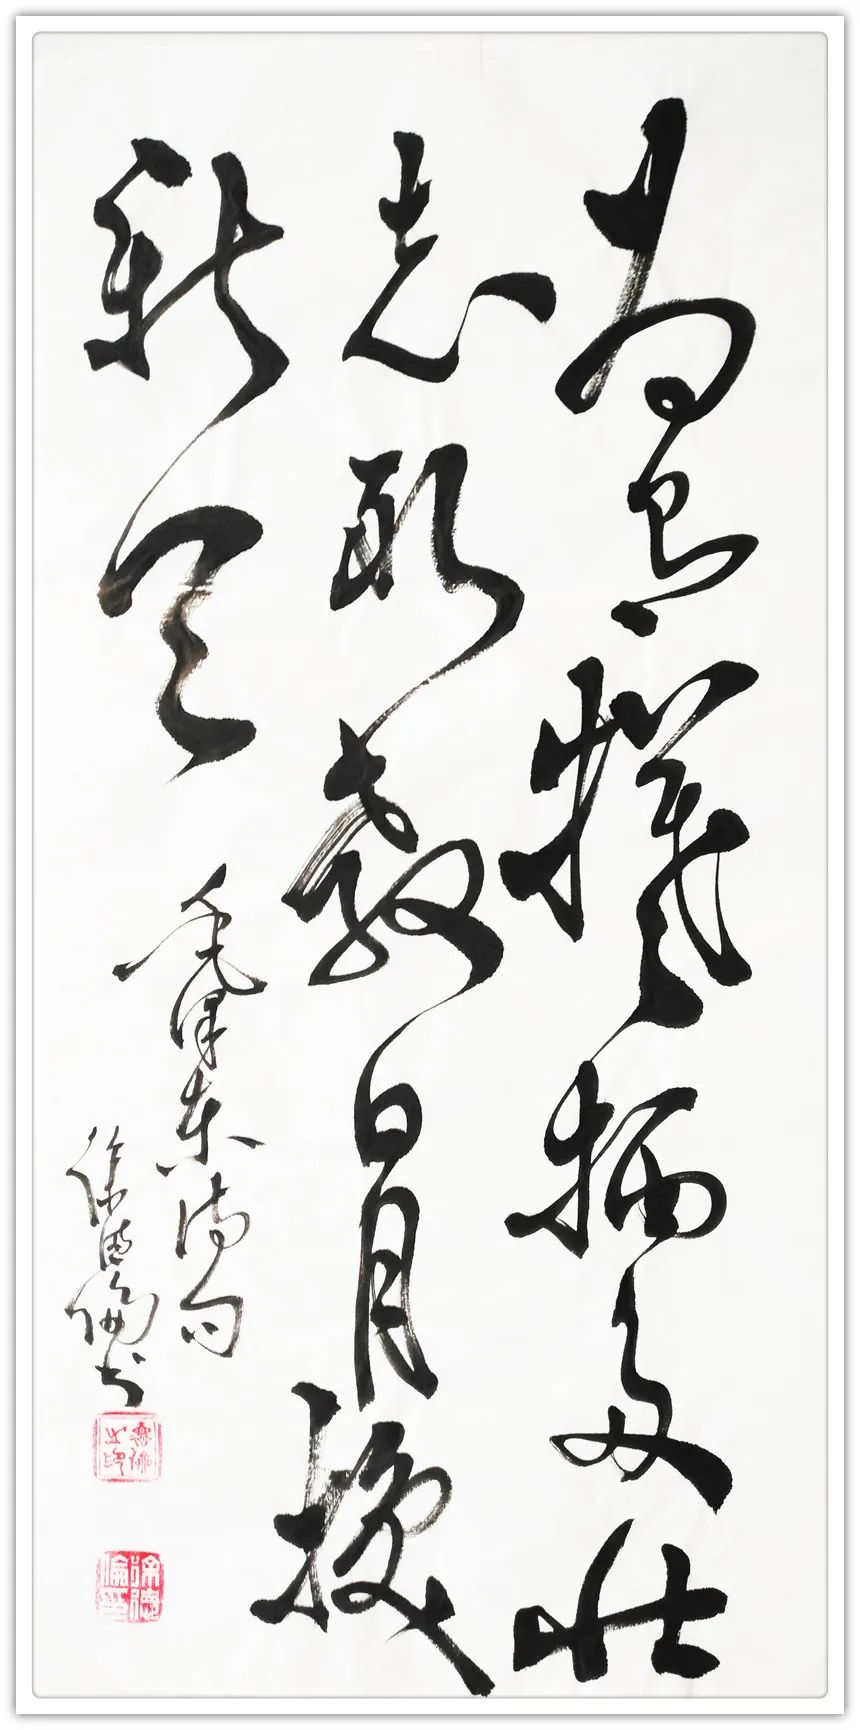 为有牺牲多壮
志敢教日月换
新天
毛泽东诗句
徐德伦书
徐德伦印